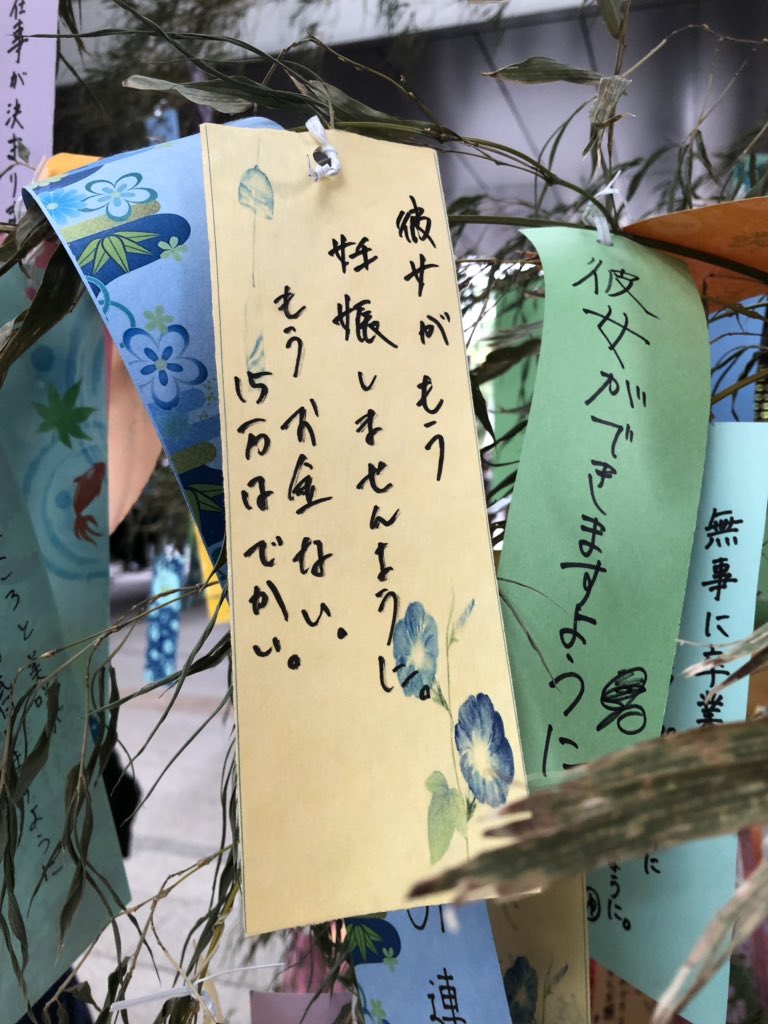 彼女がもう
妊娠しませんように。
もうお金ない。
15万はでかい。
彼女ができますように
無事に卒業
うに。
仕事が決まりま
連